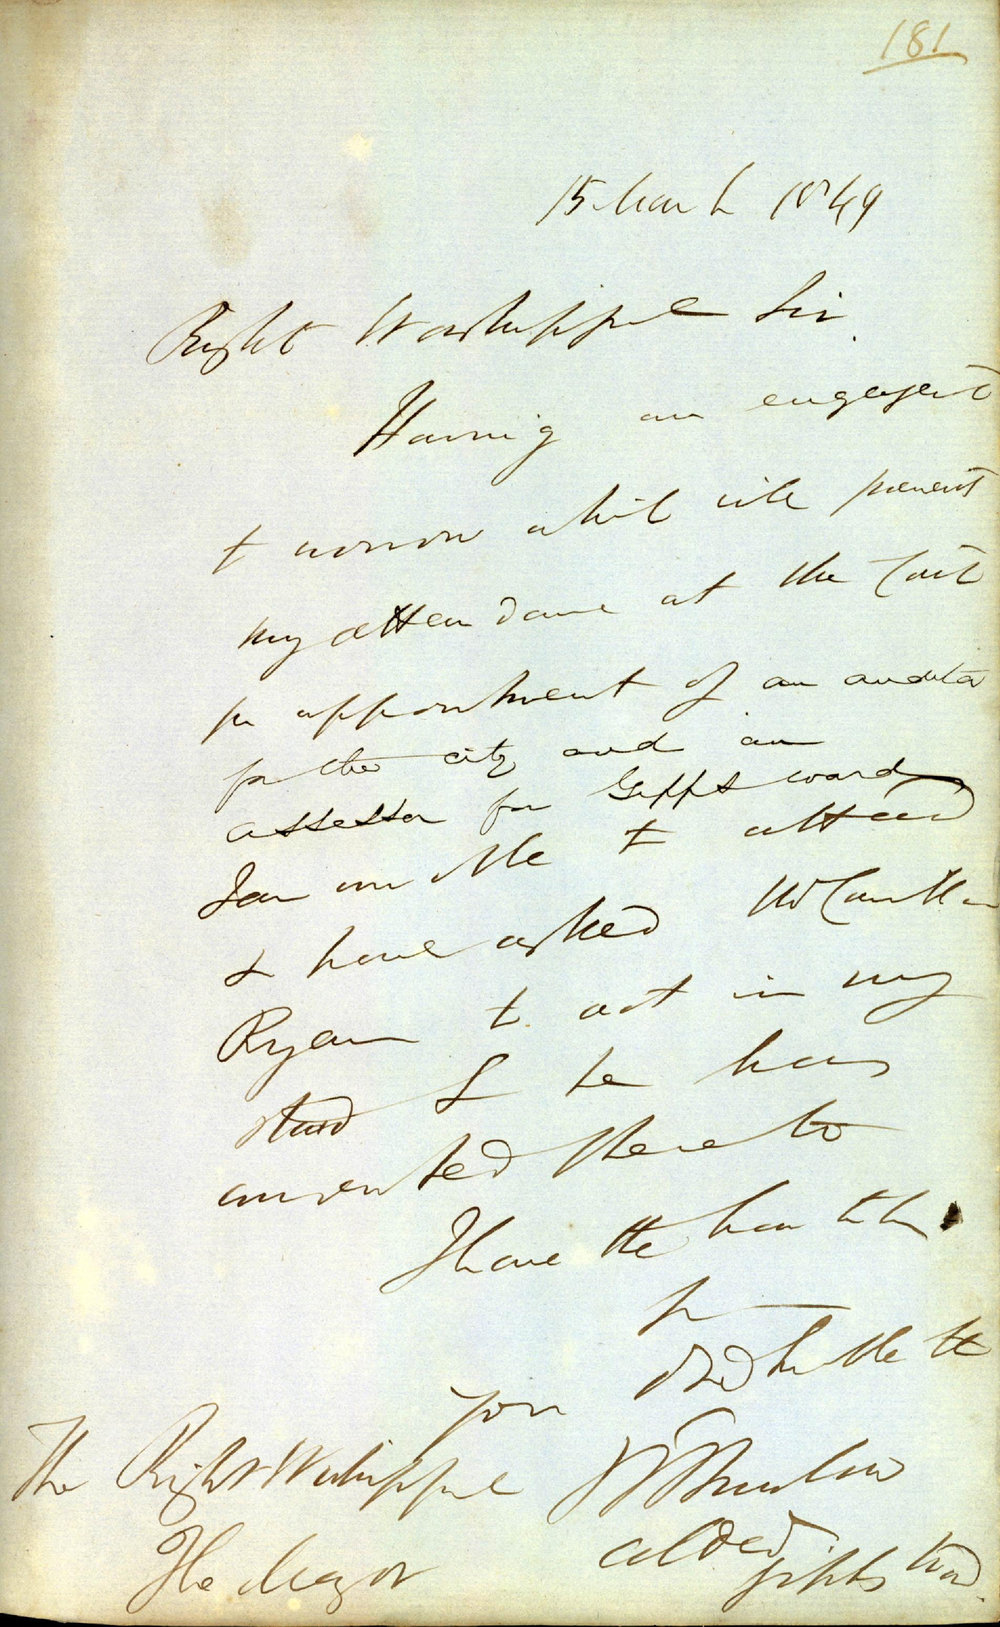 181
15 March 1849
Right Worshippful Sir
Having an engagent
to morrow which will prevent
my attendance at the Court
for appointment of an auditor
for the city and an
assessor for Gipps ward
I am unable to attend
& have asked
Ryan to act in my
stead & he has
consented thereto
I have the honor to be
Sir
your Obed humble St
The Right Worshippful
The Mayor
Gipps Ward